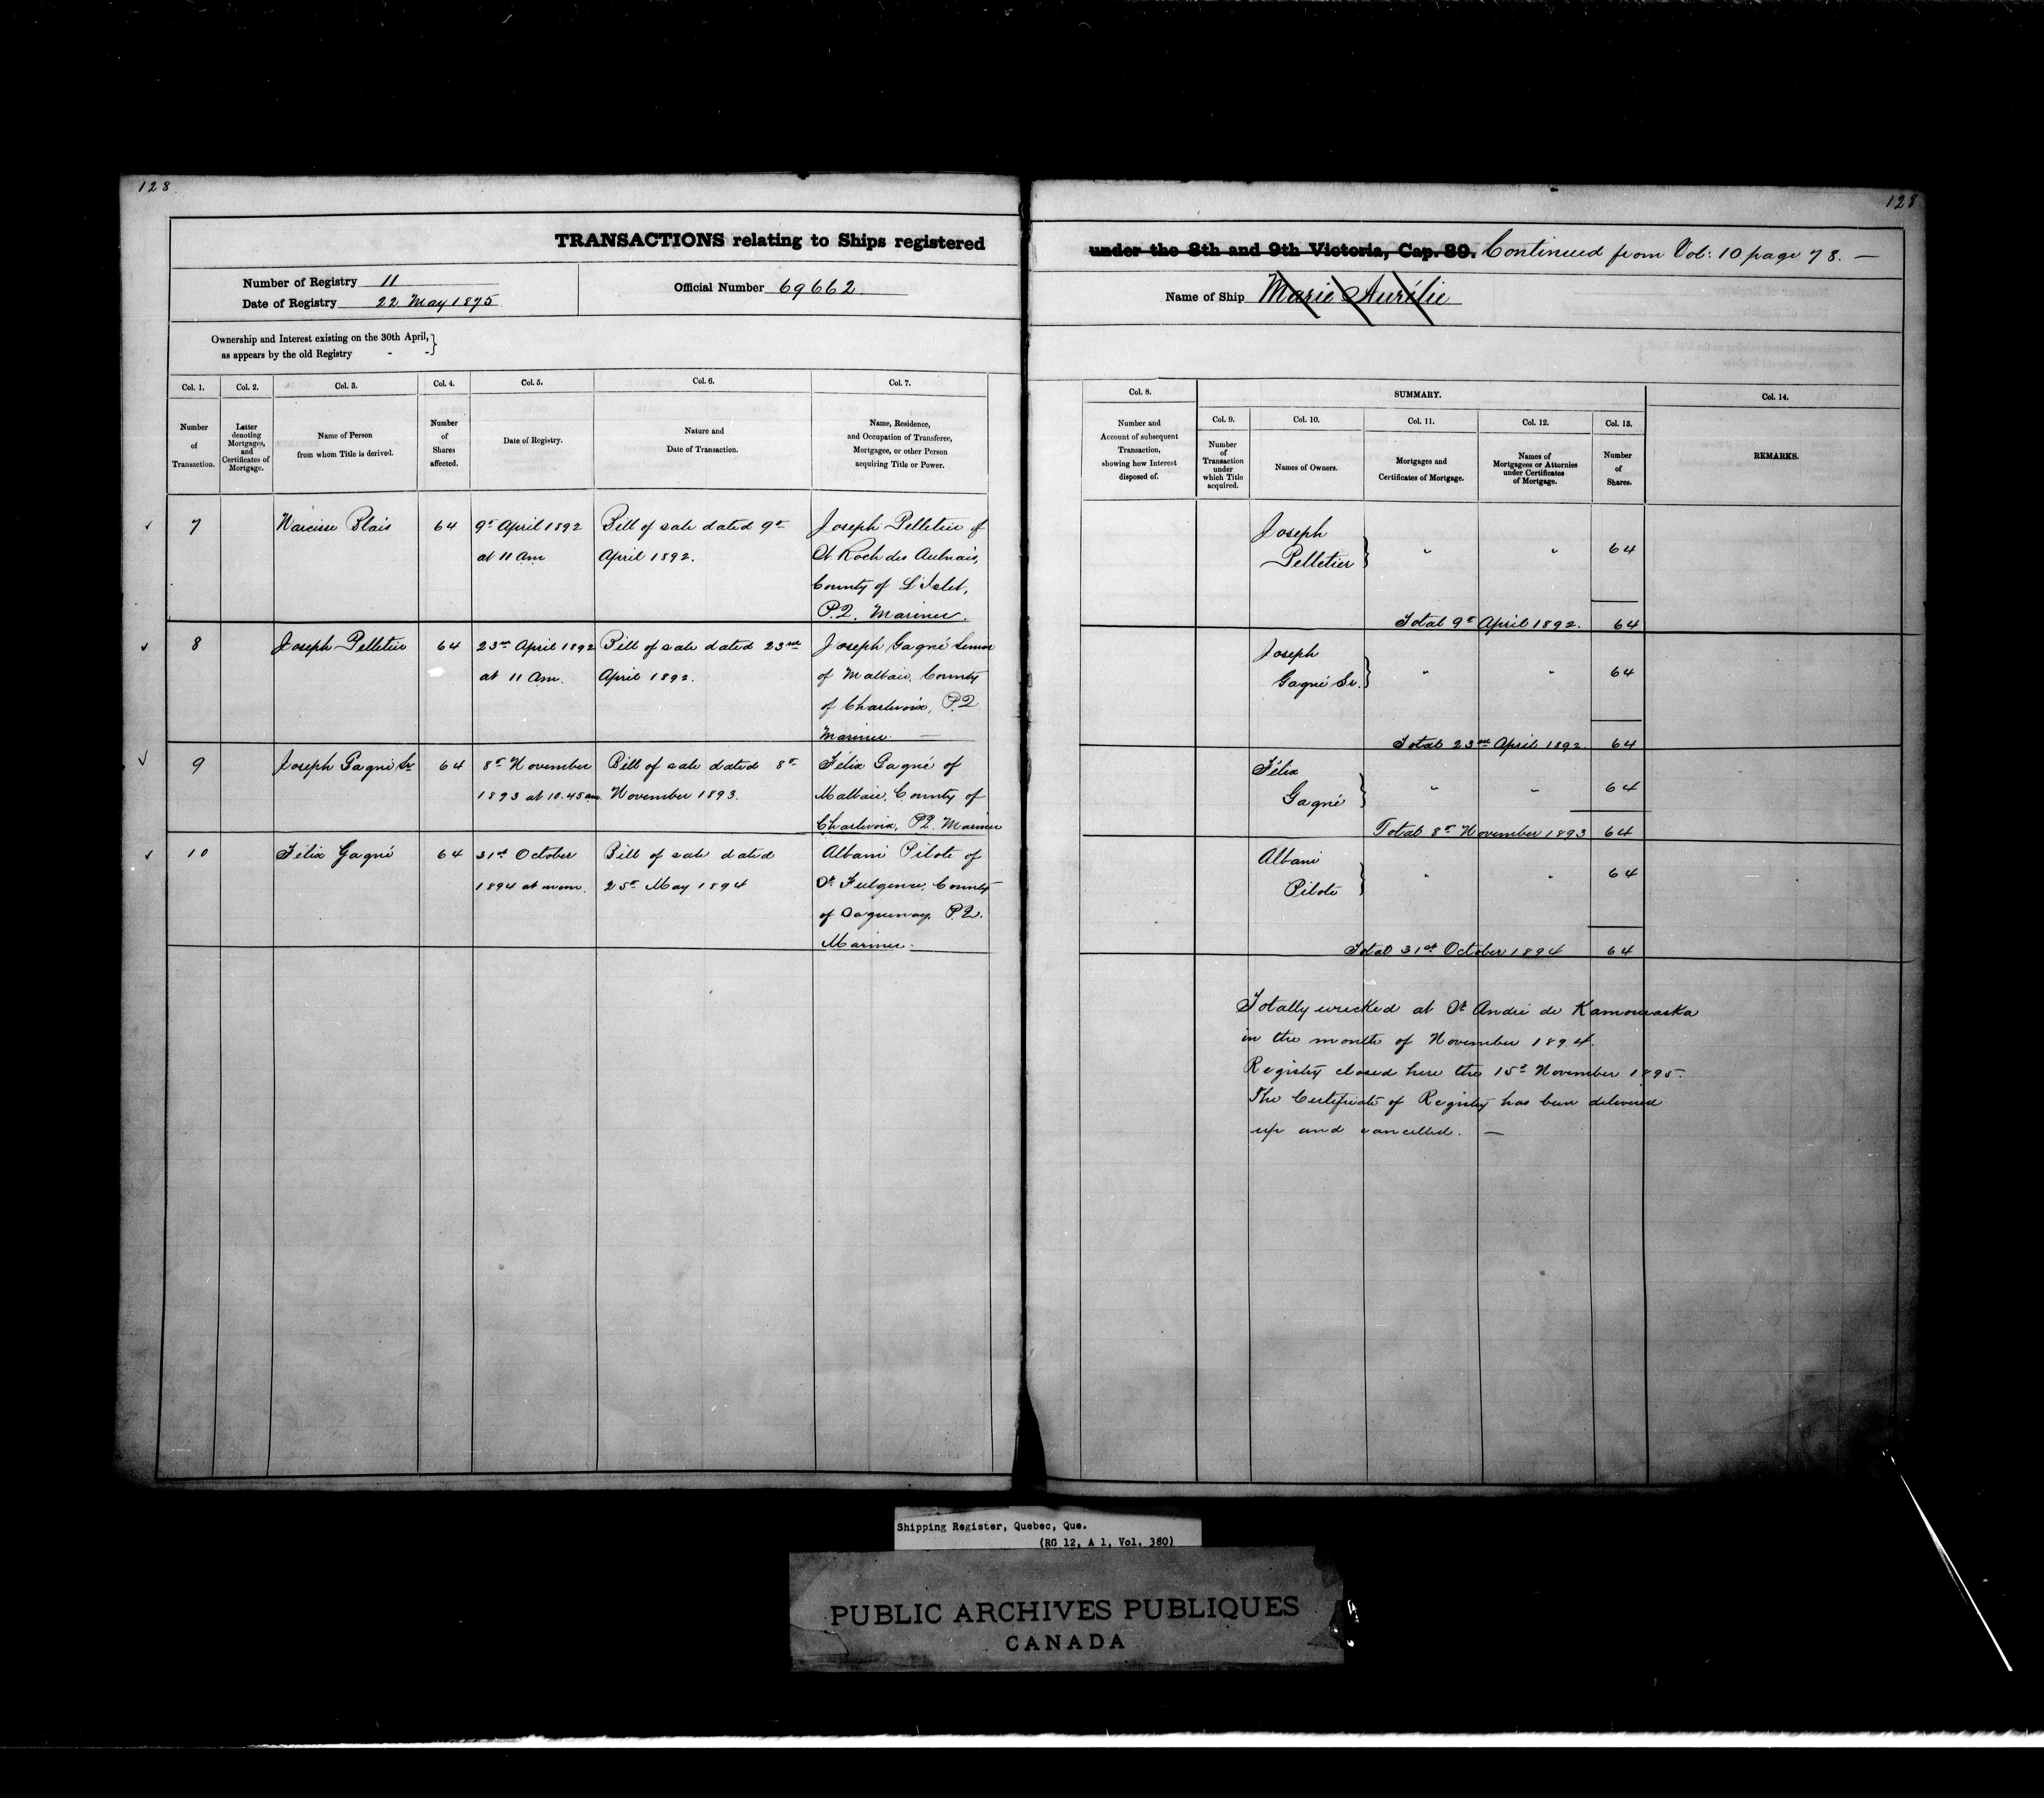 128
128
TRANSACTIONS relating to Ships registered
under the 8th and 9th Victoria, Cap. 89. Continued from Vol: 10 page 78. —
Number of Registry 11
Date of Registry 22 May 1875
Official Number 69662
Name of Ship Marie Aurélie
Ownership and Interest existing on the 30th April,
as appears by the old Registry - -
Col. 1.
Number
of
Transaction.
Col. 2.
Letter
denoting
Mortgages,
and
Certificates of
Mortgage.
Col. 3.
Name of Person
from whom Title is derived.
Col. 4.
Number
of
Shares
affected.
Col. 5.
Date of Registry.
Col. 6.
Nature and
Date of Transaction.
Col. 7.
Name, Residence,
and Occupation of Transferee,
Mortgagee, or other Person
acquiring Title or Power.
Col. 8.
Number and
Account of subsequent
Transaction,
showing how Interest
disposed of.
SUMMARY.
Col. 9.
Number
of
Transaction
under
which Title
acquired.
Col. 10.
Names of Owners.
Col. 11.
Mortgages and
Certificates of Mortgage.
Col. 12.
Names of
Mortgagees or Attornies
under Certificates
of Mortgage.
Col. 13.
Number
of
Shares.
Col. 14.
REMARKS.
7
Narcisse Blais
64
9th April 1892
at 11 am
Bill of sale dated 9th
April 1892.
Joseph Pelletier of
St Roch des Aulnais,
County of L'Islet,
P.Q. Mariner.
Joseph
Pelletier } " " 64
Total 9th April 1892. 64
8
Joseph Pelletier
64
23rd April 1892
at 11 Am.
Bill of sale dated 23rd
April 1892.
Joseph Gagné Senior
of Malbaie, County
of Charlevoix, P.Q
Mariner. —
Joseph
Gagné Sr. } " " 64
Total 23rd April 1892. 64
9
Joseph Gagné Sr
64
8th November
1893 at 10.45 am
Bill of sale dated 8th
November 1893.
Félix Gagné of
Malbaie, County of
Charlevoix, P.Q. Mariner
Félix
Gagné } " " 64
Total 8th November 1893 64
10
Félix Gagné
64
31st October
1894 at noon.
Bill of sale dated
25th May 1894
Albani Pilote of
St Fulgence, County
of Saguenay, P.Q.
Mariner.
Albani
Pilote } " " 64
Total 31st October 1894 64
Totally wrecked at St André de Kamouraska
in the month of November 1894.
Registry closed here the 15th November 1895.
The Certificate of Registry has been delivered
up and cancelled. —
Shipping Register, Quebec, Que.
(RG 12, A 1, Vol. 380)
PUBLIC ARCHIVES PUBLIQUES
CANADA